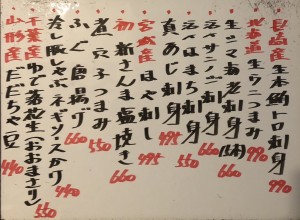 長崎産 生本鮪トロ刺身 990
北海道 生ウニつまみ 990
生ツマ海老刺身 660
活〆サニノ刺身 660
活〆はまち刺身 550
真あじ刺身 495
宮城産 ほや刺し 495
初新さんま塩焼き 660
煮穴子つまみ 550
ふぐ唐揚げ 660
冷し豚しゃぶネギソースかけ 550
千葉産 ゆで落花生(おおまさり) 440
山形産 だだちゃ豆 440